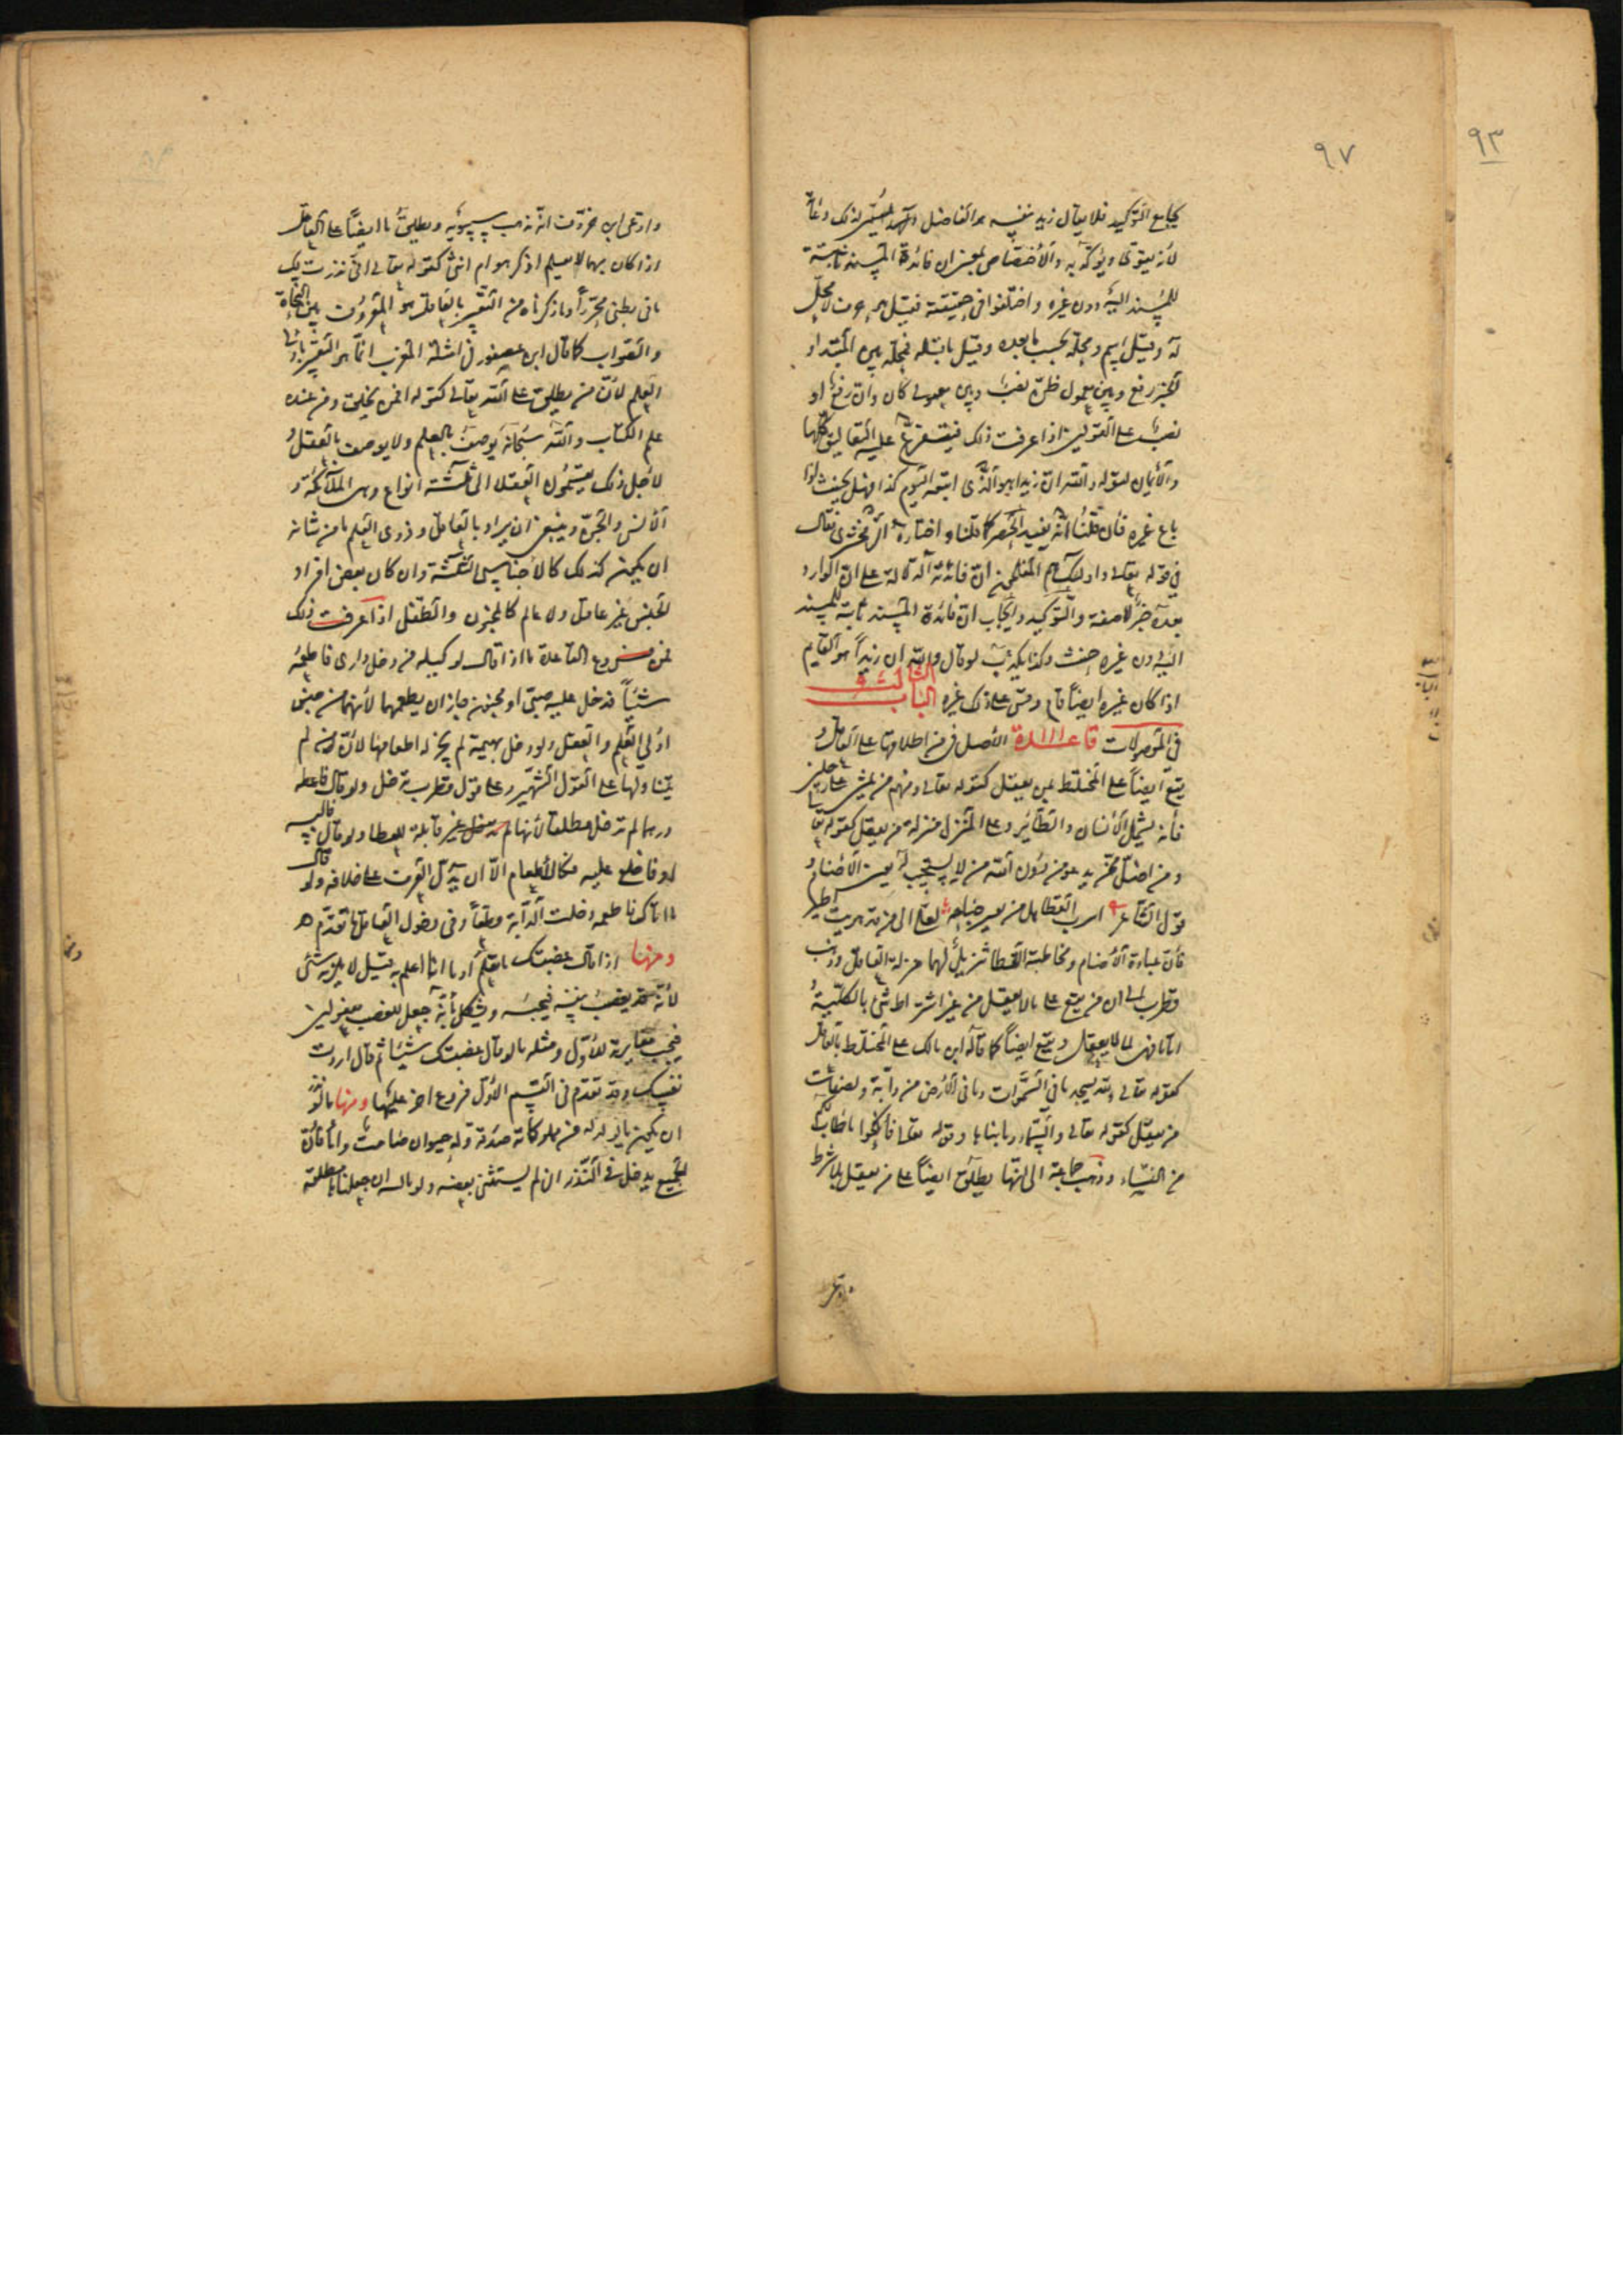 ٩٣
٩٧
يجامع التوكيد فلا يقال زيد نفسه هو الفاضل ولذلك
لأنه يقوى ويؤكد به والاختصاص بمعنى ان فائدة المسند ثابتة
للمسند اليه دون غيره واختلفوا فى حقيقته فقيل حرف لا محل
له وقيل اسم ومحله بحسب ما بعده وقيل ما قبله فمحله بين المبتدا و
الخبر رفع وبين معمولى ظن نصب وبين معمولى كان وان رفع او
نصب على القولين اذا عرفت ذلك فيتفرع عليه التعاليق كلها
والأيمان كقوله والله ان زيدا هو الذى ابتعه اليوم كذا فهل يحنث اذا
باع غيره فان قلنا انه يفيد الحصر كما قلنا واختاره الزمخشرى فقال
فى قوله تعالى واولئك هم المفلحون ان فائدته الدلالة على ان الوارد
بعده خبر لا صفة والتوكيد وايجاب ان فائدة المسند ثابتة للمسند
اليه دون غيره حنث وكذا يكذب لو قال والله ان زيدا هو القايم
اذا كان غيره ايضا قايم وقس على ذلك غيره الباب الثالث
فى الموصولات قاعدة الأصل فى من اطلاقها على العاقل و
يقع ايضا على المختلط بمن يعقل كقوله تعالى ومنهم من يمشى على رجلين
فأنه يشمل الانسان والطائر وعلى المنزل منزلة من يعقل كقوله تعالى
ومن اضل ممن يدعو من دون الله من لا يستجيب له يعنى الأصنام و
قول الشاعر اسرب القطا هل من يعير جناحه لعلى الى من قد هويت اطير
فان عبادة الأصنام ومخاطبة القطا تنزيل لهما منزلة العاقل وذهب
قطرب الى ان من يقع على ما لا يعقل من غير اشتراط شئ بالكلية
اما ما فهى لما لا يعقل وتقع ايضا كما قاله ابن مالك على المختلط بالعاقل
كقوله تعالى ولله يسجد ما فى السموات وما فى الأرض من دابة ولصفات
من يعقل كقوله تعالى والسماء وما بناها وقوله تعالى فانكحوا ما طاب لكم
من النساء وذهب جماعة الى انها يطلق ايضا على من يعقل بلا شرط
وادعى ابن خروف انه مذهب سيبويه ويطلق ما ايضا على العاقل
اذا كان مبهما لا يعلم اذكر هو ام انثى كقوله تعالى انى نذرت لك
ما فى بطنى محررا وما ذكرناه من التعبير بالعاقل هو المعروف بين النحاة
والصواب كما قال ابن عصفور فى امثلة المقرب انما هو التعبير باولى
العلم لأن من يطلق على الله تعالى كقوله افمن يخلق ومن عنده
علم الكتاب والله سبحانه يوصف بالعلم ولا يوصف بالعقل و
لاجل ذلك يقسمون العقلا الى ثلثة انواع وهى الملائكة و
الانس والجن وينبغى ان يراد بالعاقل وذوى العلم ما من شانه
ان يكون كذلك كالأجناس الثلثة وان كان بعض افراد
الجنس غير عاقل ولا عالم كالمجنون والطفل اذا عرفت ذلك
فمن فروع القاعدة ما اذا قال لوكيله من دخل دارى فاطعمه
شيئا فدخل عليه صبى او مجنون جاز ان يطعمهما لأنهما من جنس
اولى العلم والعقل ولو دخل بهيمة لم يجز له اطعامها لأن من لم
يتناولها على القول الشهير وعلى قول قطرب تدخل ولو قال فاعطه
درهما لم تدخل مطلقا لأنها غير قابلة للعطا ولو قال
فاخلع عليه فكالأطعام الا ان يدل العرف على خلافه ولو قال
فاطعمه دخلت الدابة قطعا وفى دخول العاقل ما تقدم
ومنها اذا قال غصبتك ما تعلم او ما انا اعلم به قيل لا يلزمه شئ
لأنه قد يغصب نفسه فيحبسه ويشكل بأنه جعل للغصب مفعولين
فيجب مغايرة للأول ومثله ما لو قال غصبتك شيئا ثم قال اردت
نفسك وقد تقدم فى القسم الأول فروع اخر عليها ومنها ما لو نذر
ان يكون ما يولد له من مملوكاته صدقة وله حيوان صامت واناث فان
الجميع يدخل فى النذر ان لم يستثن بعضه ولو جعلنا ما مطلقة